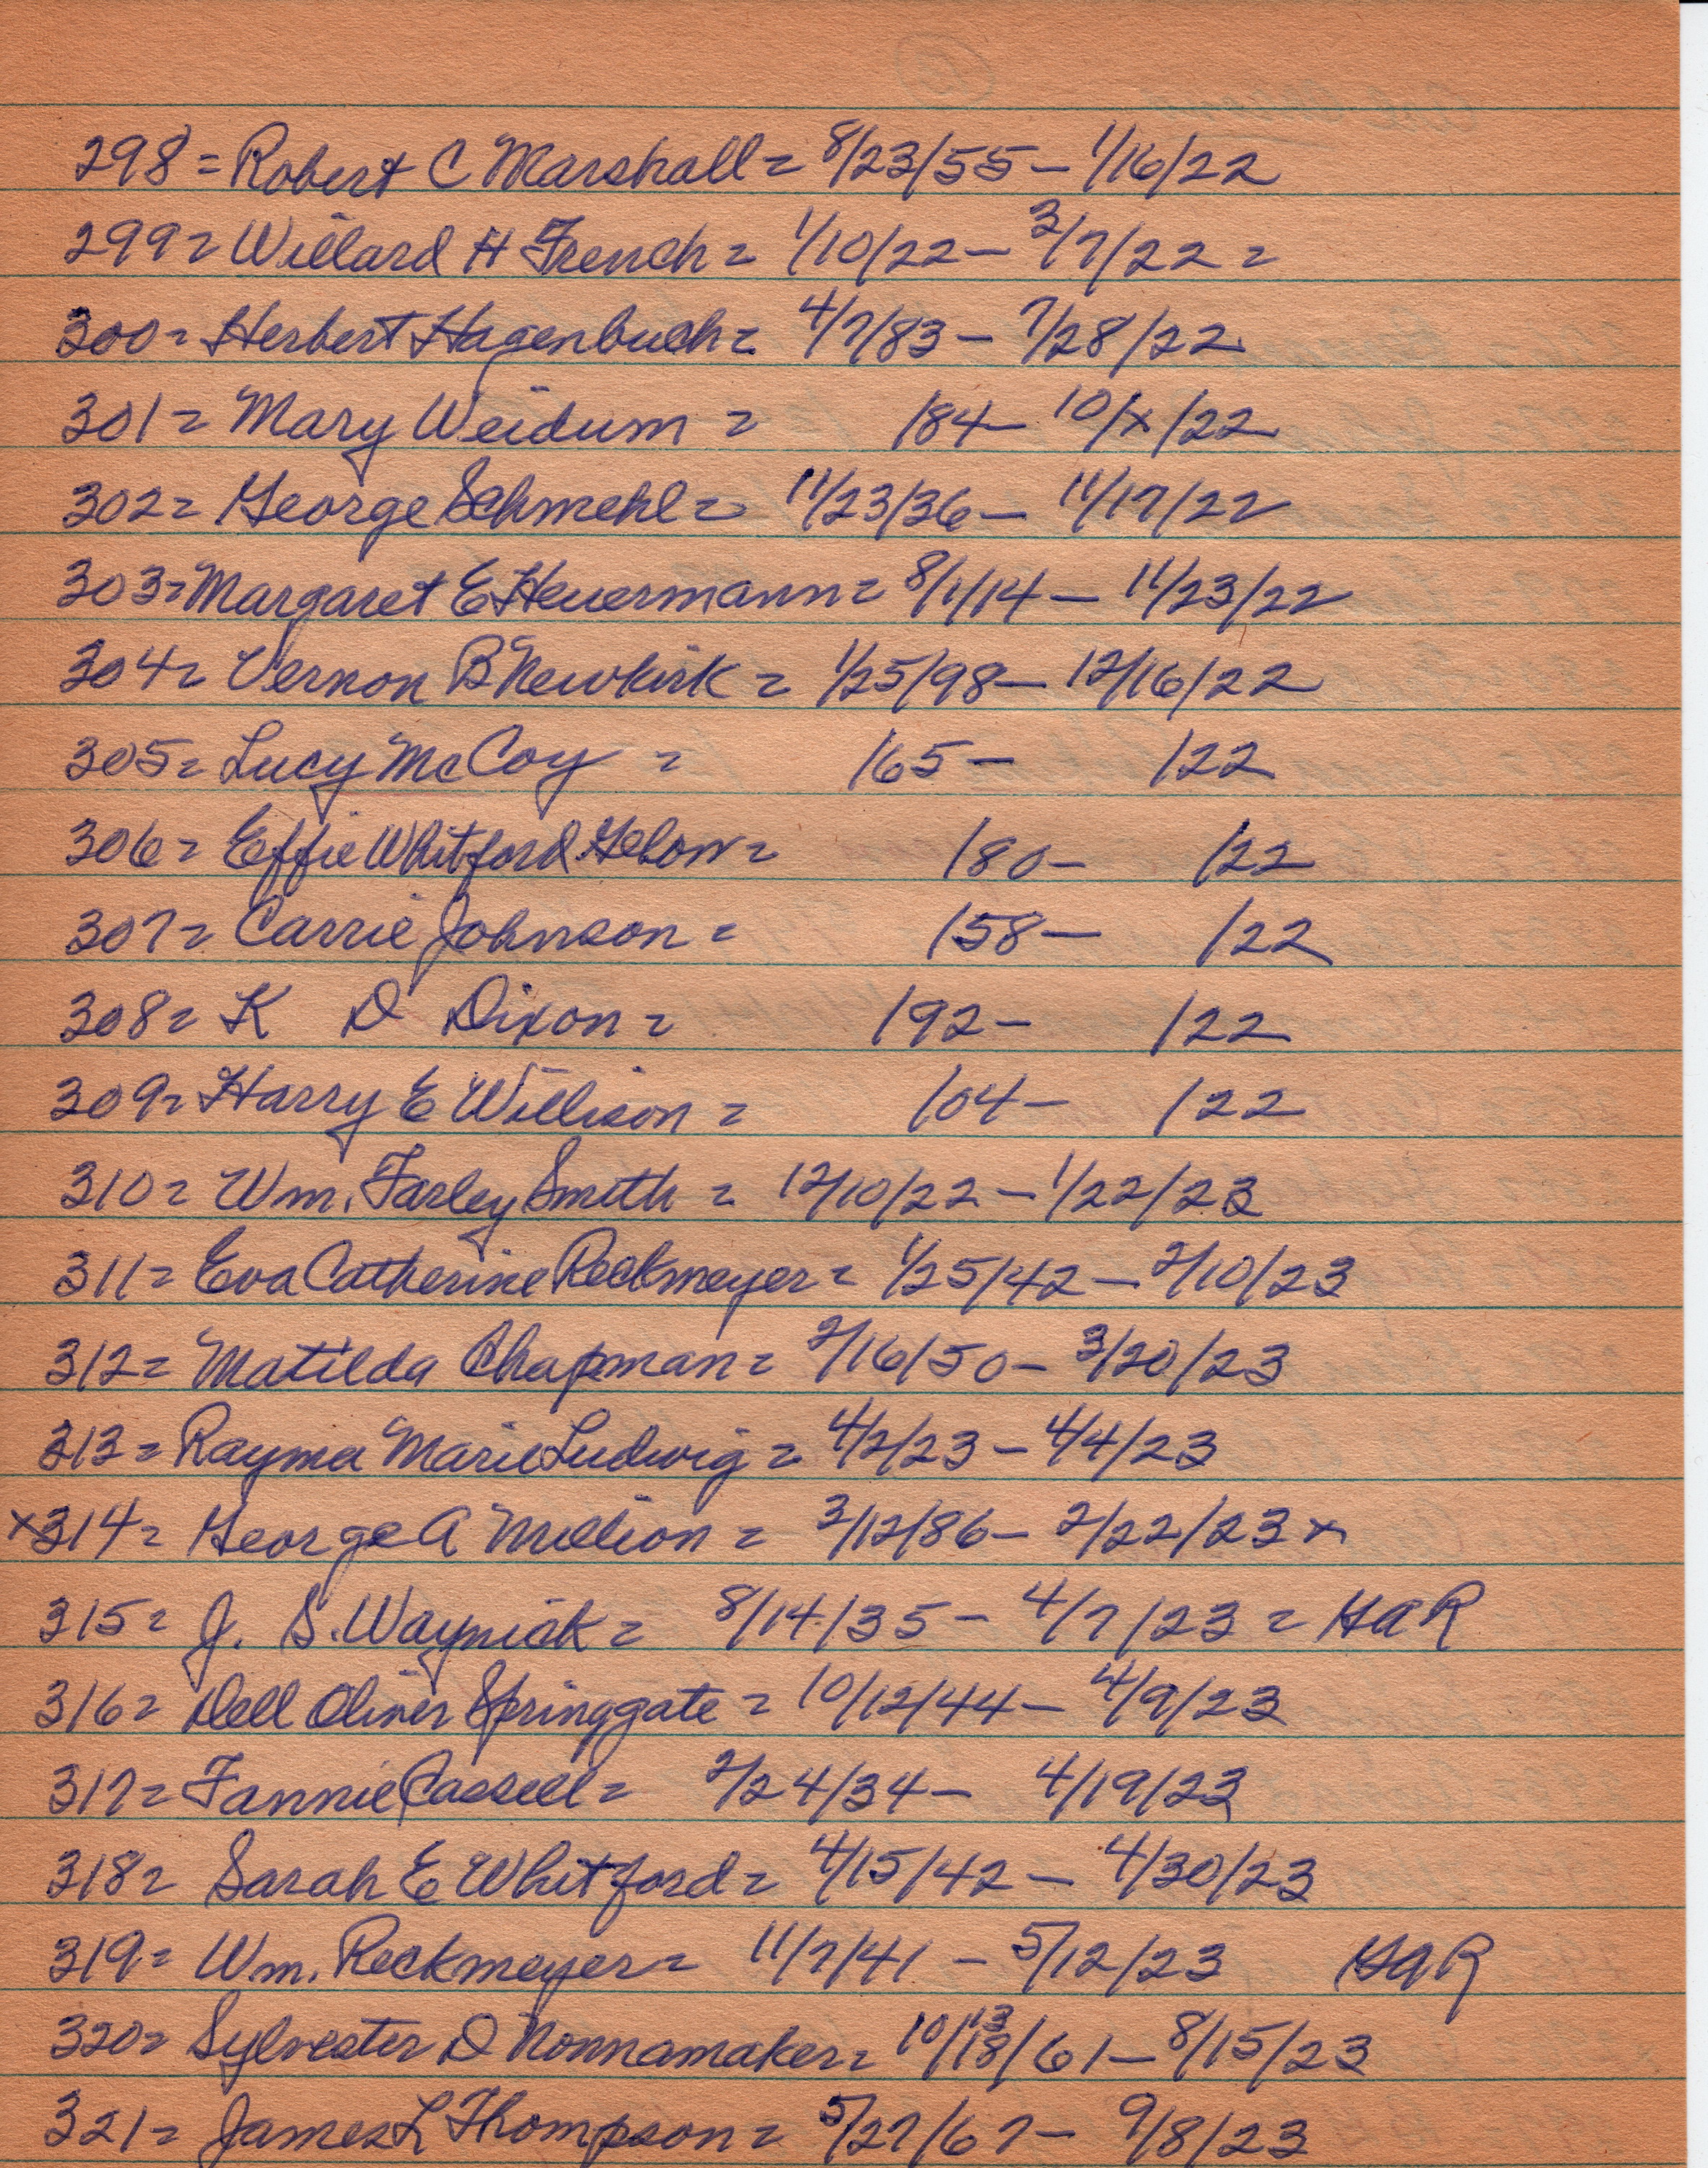 298 = Robert C Marshall = 8/23/55 - 1/16/22
299 = Willard H French = 1/10/22 - 3/7/22 =
300 = Herbert Hagenbuch = 4/7/83 - 7/28/22
301 = Mary Weidum = /84 - 10/x/22
302 = George Schmehl = 11/23/36 - 11/17/22
303 = Margaret E Heuermann = 8/1/14 - 11/23/22
304 = Vernon B Newkirk = 1/25/98 - 12/16/22
305 = Lucy McCoy = /65 - /22
306 = Effie Whitford Gebow = /80 - /22
307 = Carrie Johnson = /58 - /22
308 = K D Dixon = /92 - /22
309 = Harry E Willison = /04 - /22
310 = Wm. Farley Smith = 12/10/22 - 1/22/23
311 = Eva Catherine Reckmeyer = 1/25/42 - 2/10/23
312 = Matilda Chapman = 2/16/50 - 3/20/23
313 = Rayma Marie Ludwig = 4/2/23 - 4/4/23
x314 = George A Million = 3/12/86 - 2/22/23 x
315 = J. S. Waynick = 8/14/35 - 4/7/23 = GAR
316 = Dell Oliver Springgate = 10/12/44 - 4/9/23
317 = Fannie Cassell = 2/24/34 - 4/19/23
318 = Sarah E Whitford = 4/15/42 - 4/30/23
319 = Wm. Reckmeyer = 11/7/41 - 5/12/23 GAR
320 = Sylvester D Nonnamaker = 10/13/61 - 8/15/23
321 = James L Thompson = 5/27/67 - 9/8/23